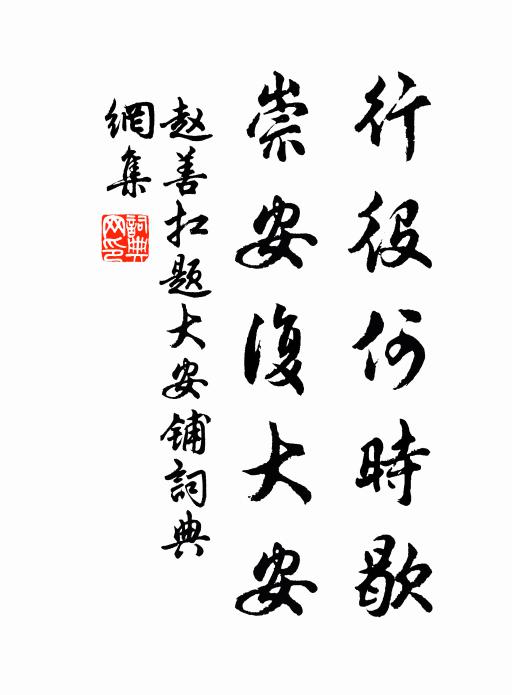 行役何時歇
崇安復大安
赵善扛题大安铺詞典
網集
詞典網印